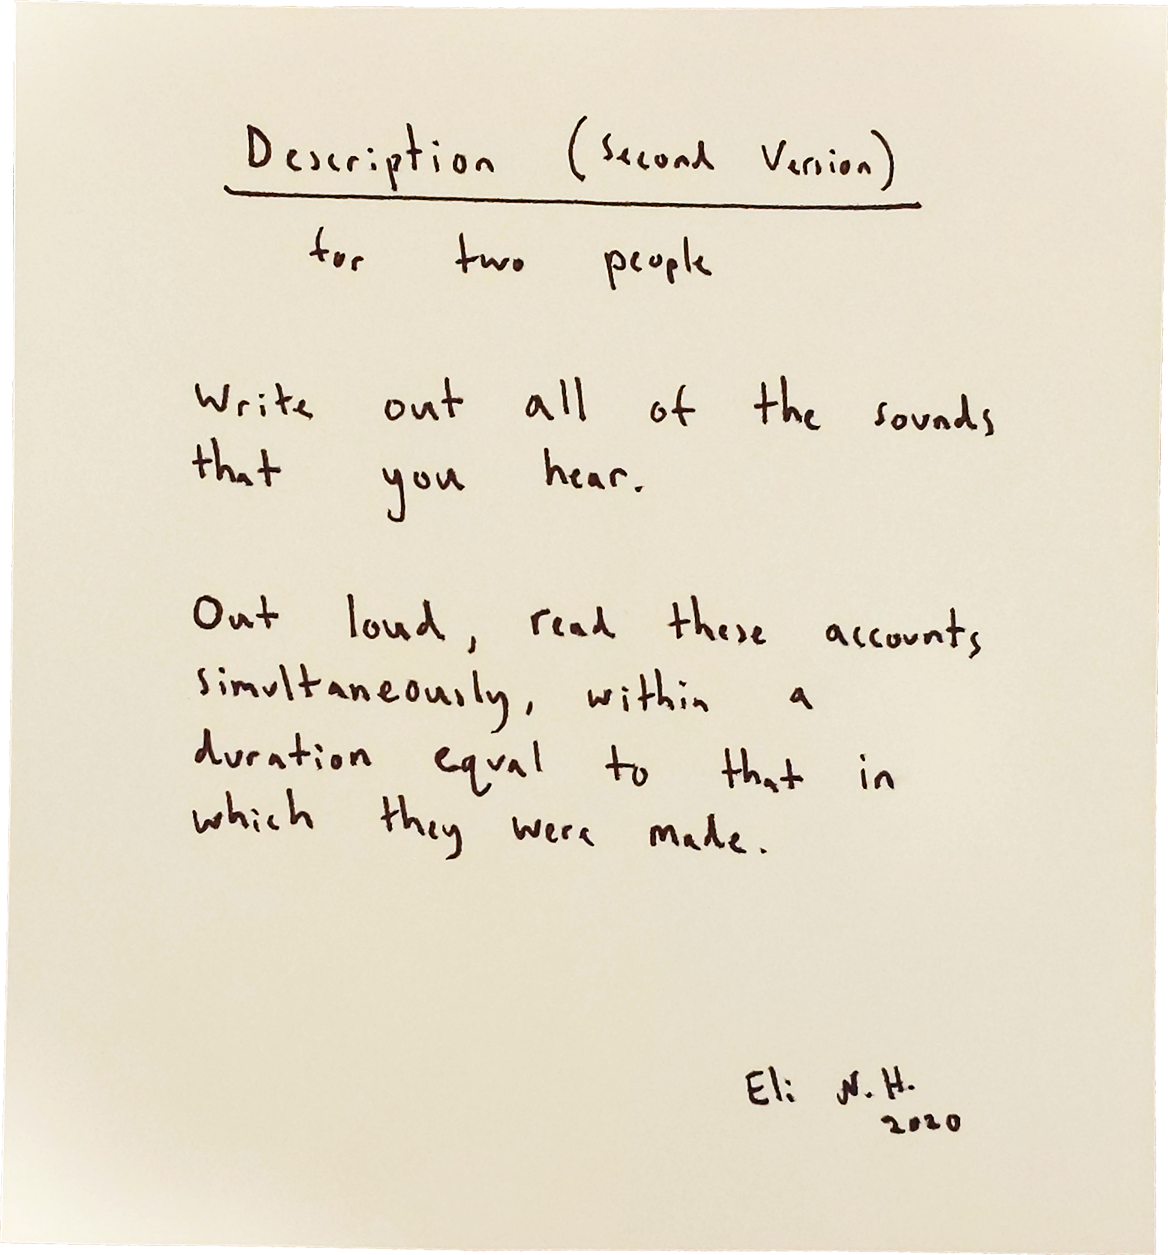 Description (Second Version)
for two people
Write out all of the sounds
that you hear.
Out loud, read these accounts
simultaneously, within a
duration equal to that in
which they were made.
Eli N.H.
2020